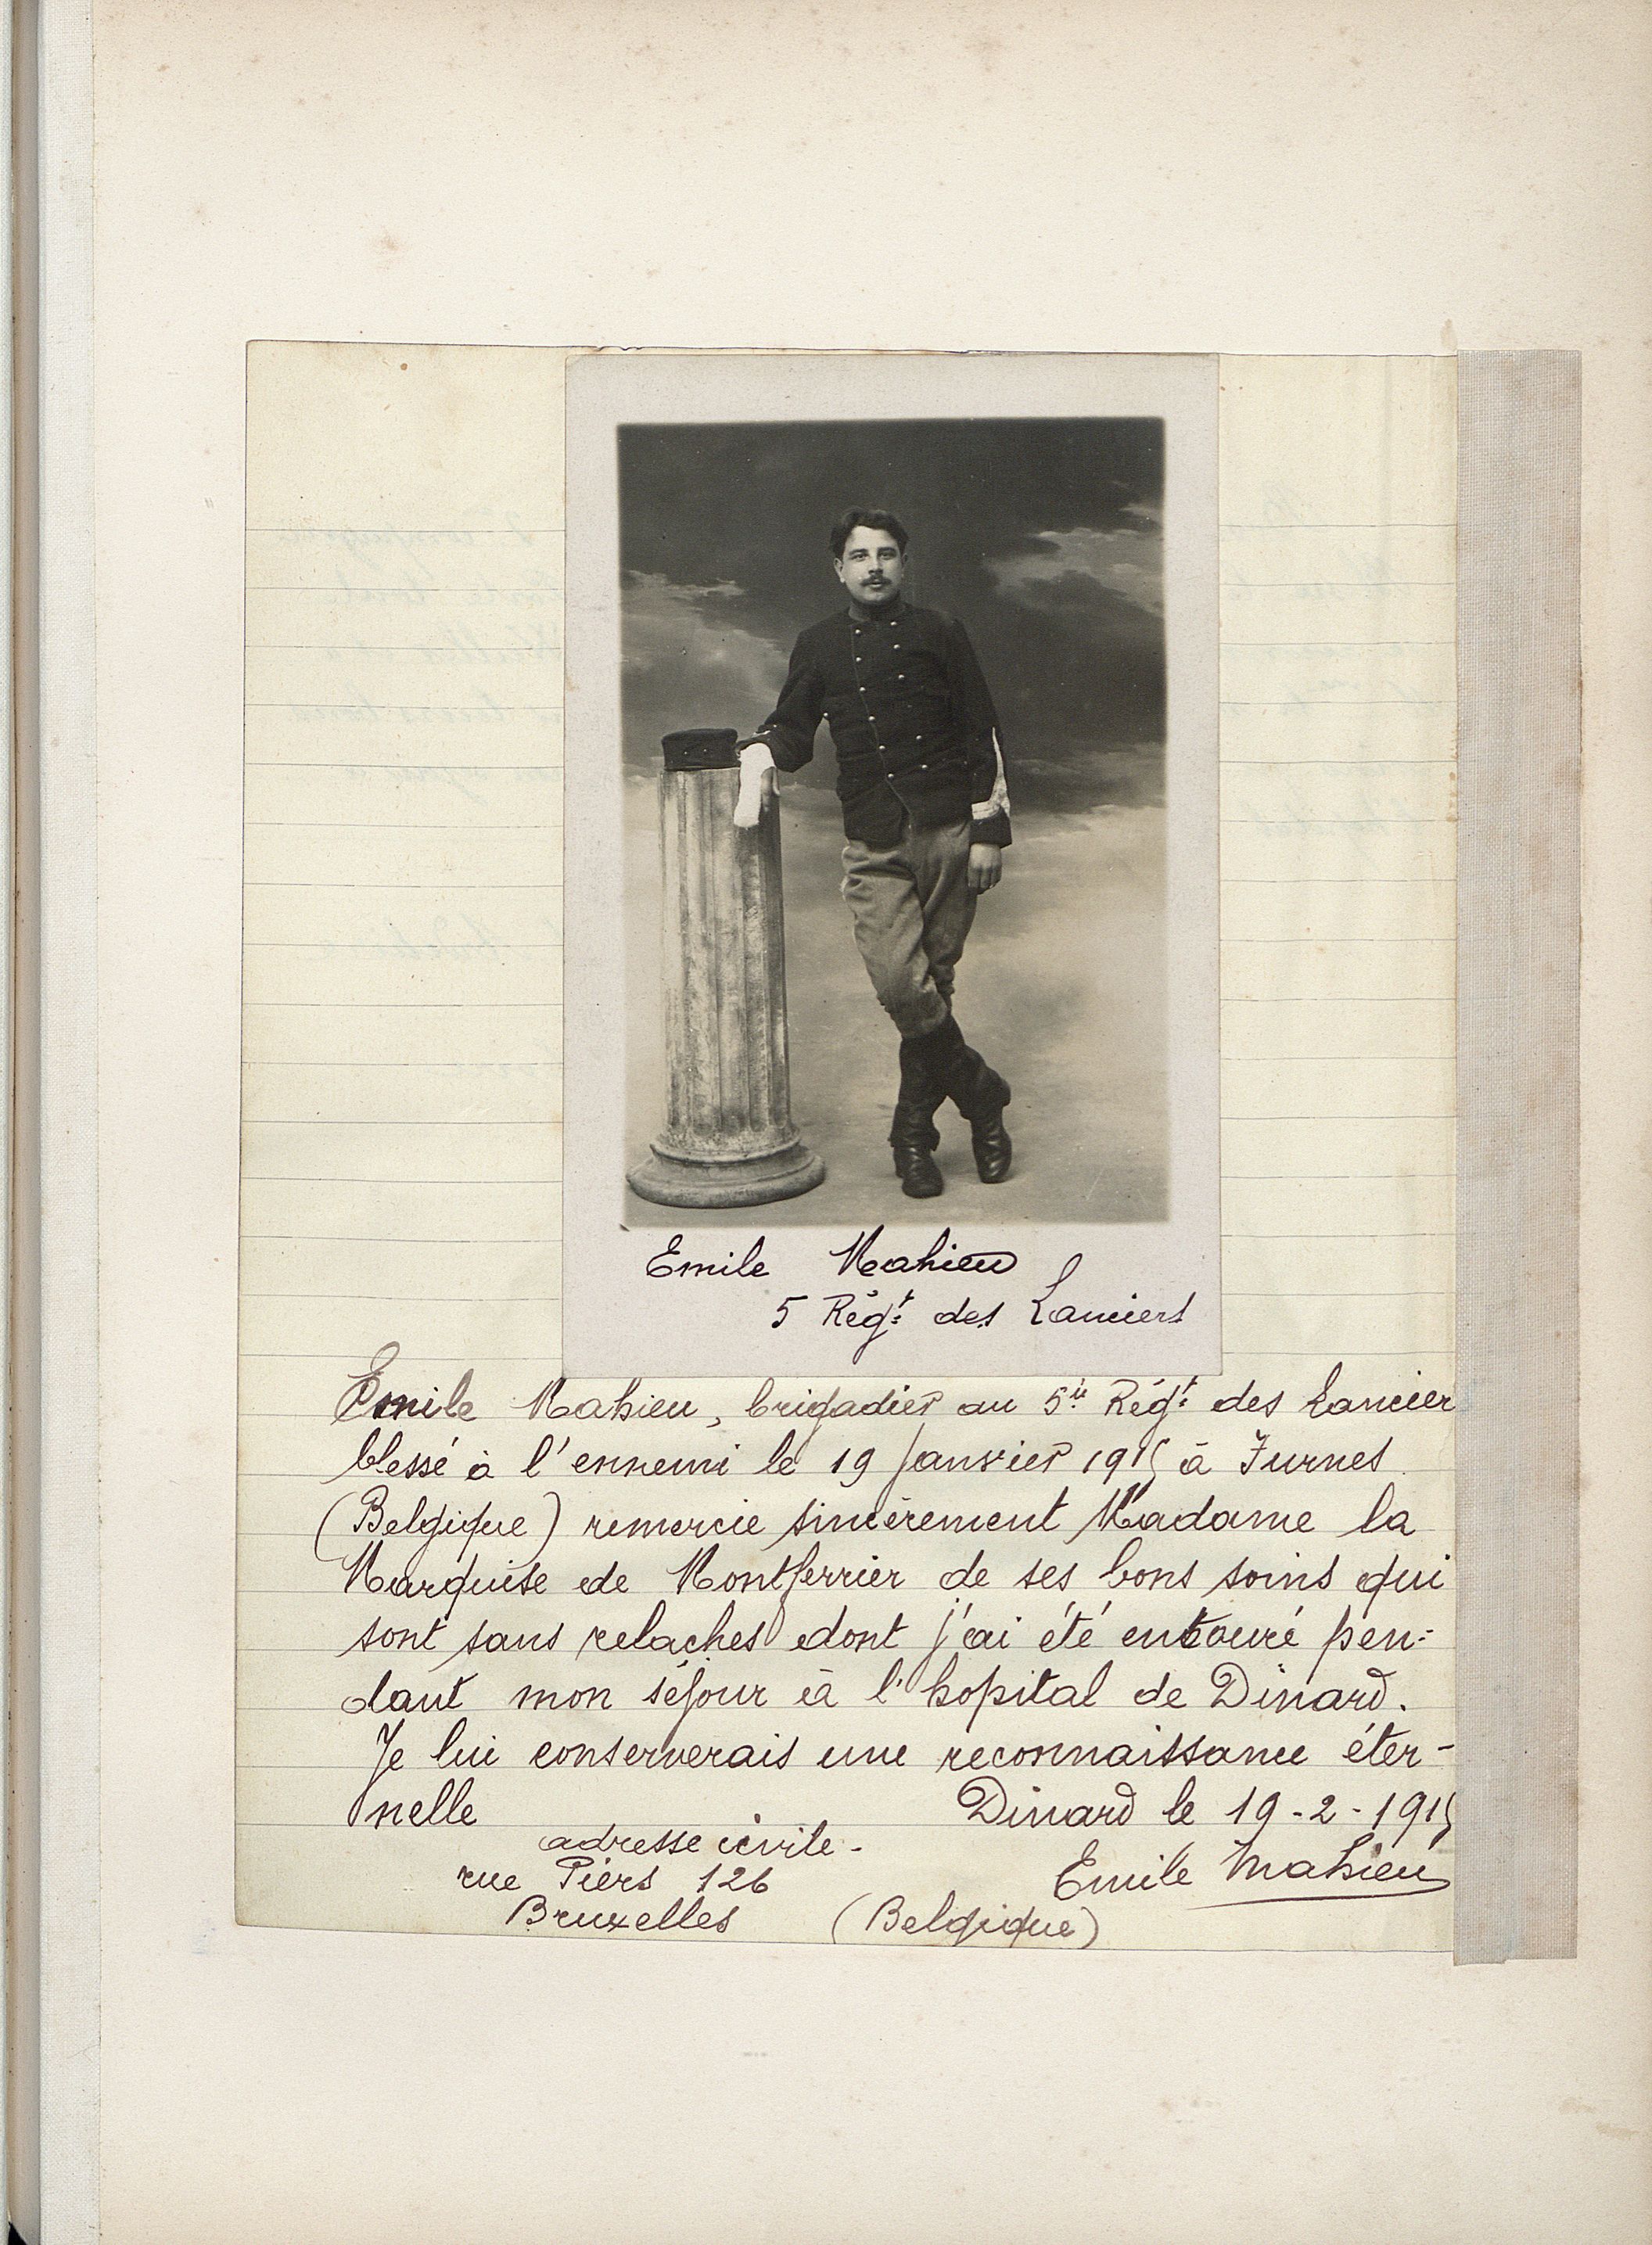 Emile Mahieu
5 Régt des Lanciers
Emile Mahieu, brigadier au 5ie Régt des Lancier
blessé à l'ennemi le 19 Janvier 1915 à Furnes
(Belgique) remercie sincèrement Madame la
Marquise de Montferrier de ses bons soins qui
sont sans relaches dont j'ai été entouré pen-
dant mon séjour à l'hopital de Dinard.
Je lui conserverais une reconnaissance éter-
nelle Dinard le 19-2-1915
adresse civile-
rue Piers 126 Emile Mahieu
Bruxelles (Belgique)